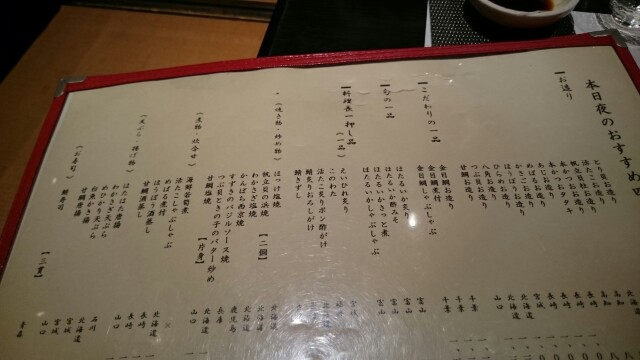 本日夜のおすすめ
【お造り】
とこぶしお造り
活たこお造り
帆立貝お造り
本かつおタタキ
本かつおお造り
あじお造り
めばるお造り
かさごお造り
ほうぼうお造り
ひらめお造り
八角お造り
つぶ貝お造り
甘鯛お造り
【こだわりの一品】
金目鯛お造り
金目鯛煮付
金目鯛しゃぶしゃぶ
【旬の一品】
ほたるいか炙り
ほたるいか酢みそ
ほたるいかさっと煮
ほたるいかしゃぶしゃぶ
【料理長一押し品(一品)】
えいひれ炙り
このわた
活たこ炙りポン酢がけ
鯖炙りおろしがけ
鯖きずし
(焼き物・炒め物)
ほっけ塩焼
帆立貝の浜焼【二個】
わかさぎ塩焼
かんぱち西京焼
すずきのバジルソース焼
つぶ貝ときの子のバター炒め
甘鯛塩焼【片身】
(煮物・蒸合せ)
海鮮若筍煮
活たこしゃぶしゃぶ
めばる煮付
ほうぼう酒蒸し
甘鯛酒蒸し
(天ぷら・揚げ物)
はたはた唐揚
わかさぎ天ぷら
めひかり天ぷら
白魚かき揚
甘鯛唐揚
(お寿司)
鯖寿司【三貫】
高知
長崎
長崎
長崎
宮城
北海道
山口
千葉
千葉
千葉
富山
富山
富山
富山
北海道
北海道
鹿児島
兵庫
北海道
山口
×
北海道
長崎
長崎
山口
石川
北海道
宮城
宮城
山口
青森